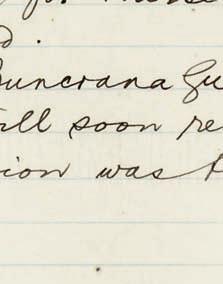 for these
d.
Buncrana Gu
ill soon re
ion was